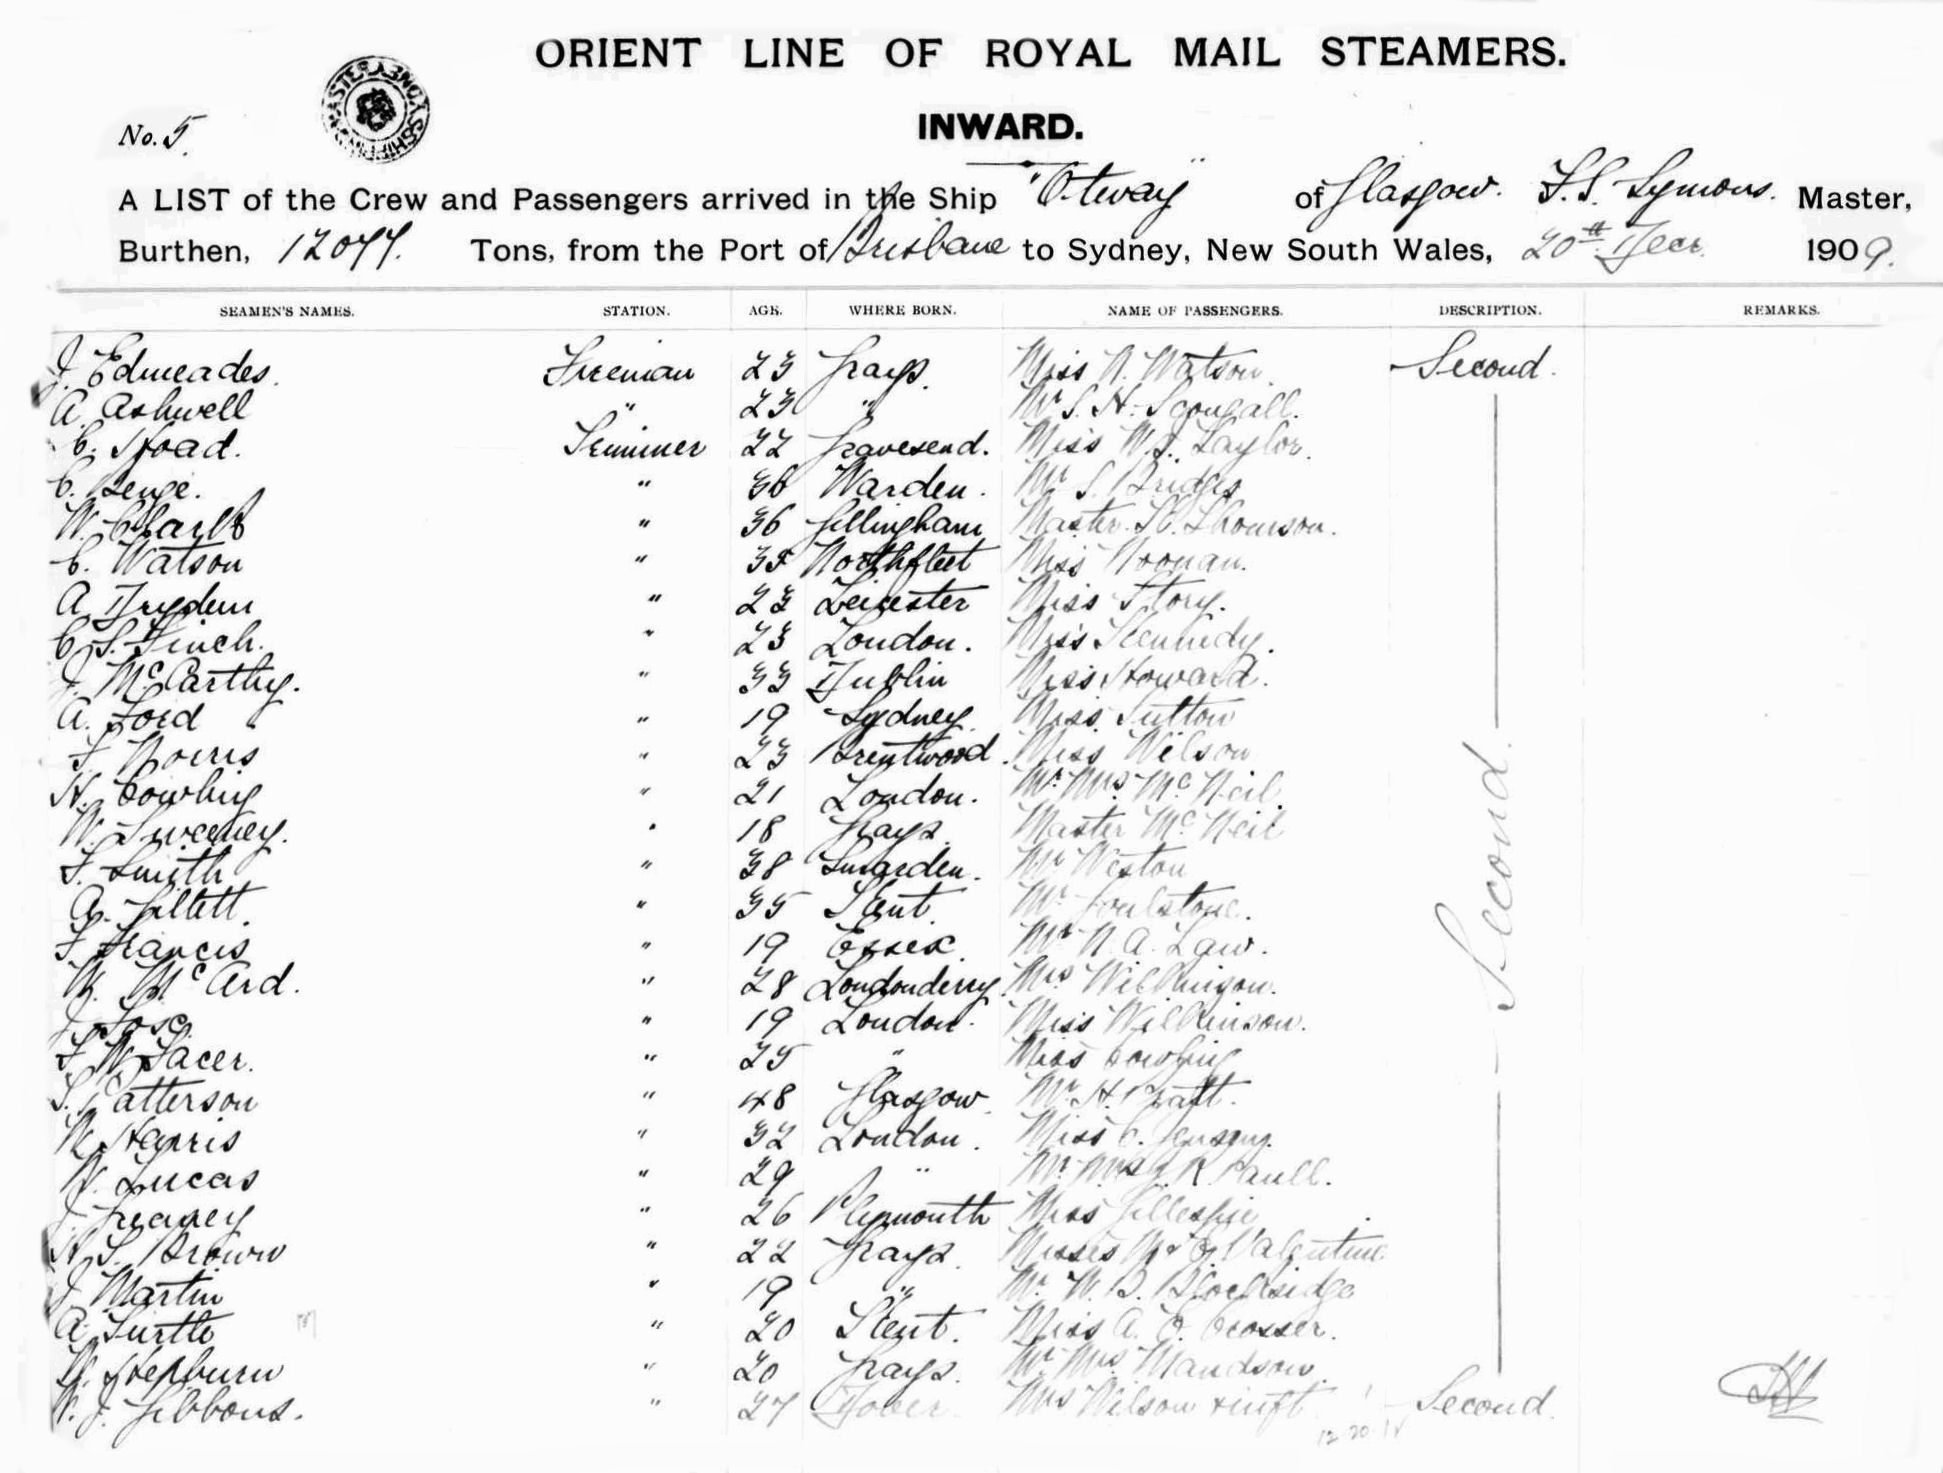 ORIENT LINE OF ROYAL MAIL STEAMERS.
INWARD.
No. 5.
A LIST of the Crew and Passengers arrived in the Ship "Otway" of Glasgow. F.S. Symons. Master,
Burthen, 12077. Tons, from the Port of Brisbane to Sydney, New South Wales, 20th Decr. 1909.
SEAMEN'S NAMES. STATION. AGE. WHERE BORN. NAME OF PASSENGERS. DESCRIPTION. REMARKS.
J. Edmeades. Fireman 23 Grays. Miss N. Watson. Second.
A. Ashwell " 23 " Mr S. H. Scougall.
C. Hoad. Trimmer 22 Gravesend. Miss W. J. Taylor.
C. Senge. " 36 Warden. Mr S. Bridges
W. " 36 Gillingham Master Thomson.
C. Watson " 35 Northfleet Miss Noonan.
A. Dryden " 23 Leicester Miss Story.
C. S. Finch. " 23 London. Miss Kennedy.
J. McCarthy. " 33 Dublin Miss Howard.
A. Ford " 19 Sydney. Miss Sutton
F. Norris " 23 Brentwood. Miss Wilson
H. Cowling " 21 London. Mr Mrs McNeil.
W. Sweeney. " 18 Grays. Master McNeil
F. Smith " 38 Smarden. Mr Weston
A. Gillett. " 35 Kent. Mr Goulstone.
F. Francis " 19 Essex. Mr N. A. Law.
McArd. " 28 Londonderry. Mrs Wilkinson. Second.
J. " 19 London. Miss Wilkinson.
F. W. Facer. " 25 " Miss Cowling
S. Patterson " 48 Glasgow. Mr H. Pratt.
W. Harris " 32 London. Miss C. Jensen.
W. Lucas " 29 " Mr Mrs R. Paull.
J. Greaney " 26 Plymouth Miss Gillespie
H. S. Brown " 22 Grays. Misses M & G Valentine
J. Martin " 19 " Mr. W. B. Blocksidge
A. Turtle " 20 Kent. Miss A. E. Crosser.
W. Hepburn " 20 Grays. Mr Mrs Mandson.
W. J. Gibbons. " 27 Dover. Mrs Wilson & inft Second.